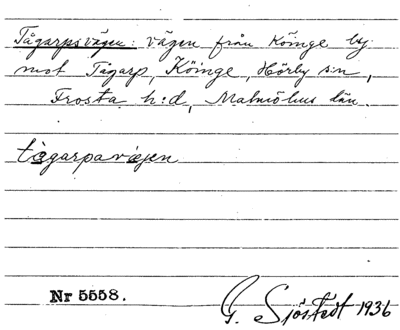 Tågarpsvägen: vägen från Köinge by
mot Tågarp, Köinge, Hörby s:n,
Frosta h:d, Malmöhus län.
tågarpaväjen
Nr 5558.
G. Sjöstedt 1936